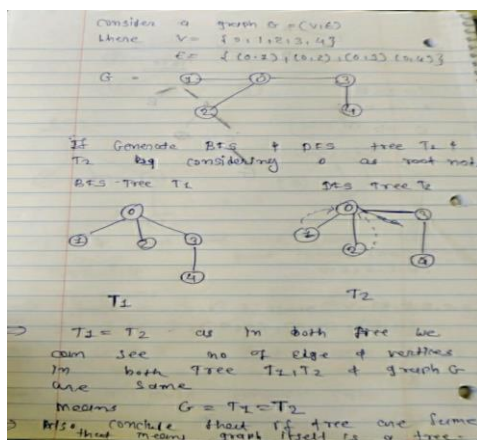 consider a graph G = (V,E)
where V = {0,1,2,3,4}
E = {(0,1),(0,2),(0,3),(0,4)}
G = 1 0 3
2 4
If Generate BFS & DFS tree T1 &
T2 by considering 0 as root not
BFS Tree T1 DFS Tree T2
0 0
1 2 3 1 2 3
4 4
T1 T2
⇒ T1 = T2 as in both tree we
can see no of edge & vertines
in both Tree T1,T2 & graph G
are same
means G = T1 = T2
Also conclude that if tree are same
that means graph itself is a tree-